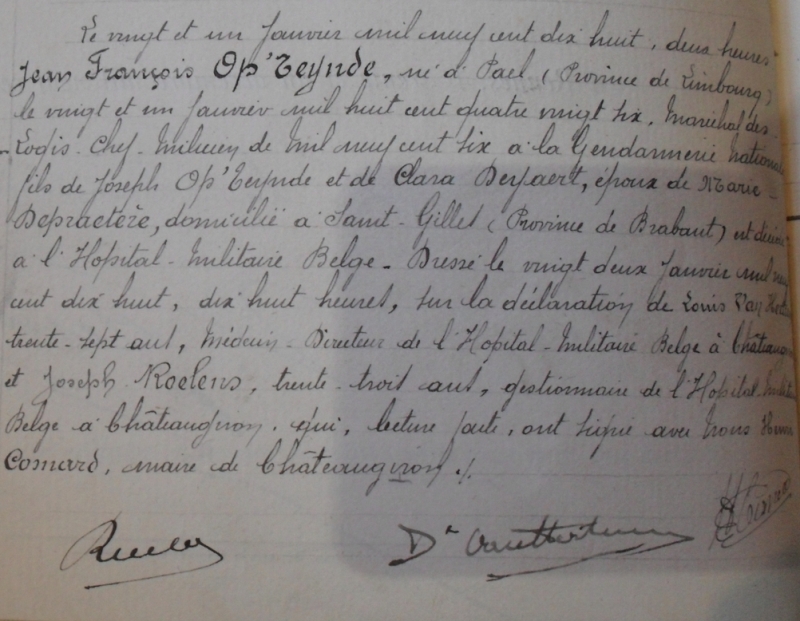 Le vingt et un Janvier mil neuf cent dix huit, deux heures
Jean François Op'Teynde, né à Pael (Province de Limbourg)
le vingt et un Janvier mil huit cent quatre vingt six, Maréchal des-
-Logis-Chef-Milicien de Mil neuf cent six à la Gendarmerie Nationale
fils de Joseph Op'Teynde et de Clara Deypaert, époux de Marie-
Depraetère, domicilié à Saint-Gilles (Province de Brabant) est décédé
à l'Hopital-Militaire Belge - Dressé le vingt deux Janvier mil neuf
cent dix huit, dix huit heures, sur la déclaration de Louis Van
trente-sept ans, Médecin-Directeur de l'Hopital-Militaire Belge à Châteaugiron
et Joseph Roelens, trente-trois ans, gestionnaire de l'Hopital-Militaire
Belge à Châteaugiron. qui, lecture faite, ont signé avec Nous
Comard, maire de Châteaugiron ./.
Dr